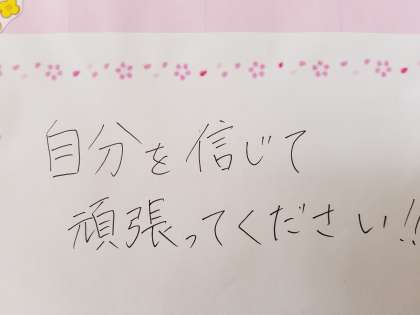 自分を信じて
頑張ってください!!